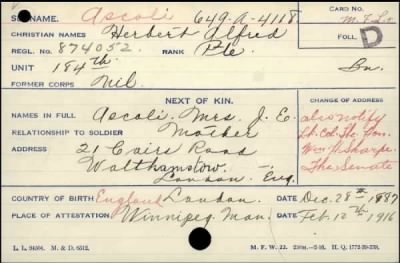 SURNAME. Ascoli, 649-A-4118 CARD NO.
CHRISTIAN NAMES Herbert Alfred
REGL. NO. 874052 RANK Pte FOLL. D
UNIT 184th Bn.
FORMER CORPS Nil.
NEXT OF KIN. CHANGE OF ADDRESS
NAMES IN FULL Ascoli, Mrs. J. E. also notify
RELATIONSHIP TO SOLDIER Mother Lt. Col. The Hon.
ADDRESS 21 Road Wm. H. Sharpe
Walthamstow, The Senate
London Eng
COUNTRY OF BIRTH England London DATE Dec. 28th 1887
PLACE OF ATTESTATION Winnipeg Man. DATE Feb. 12th 1916
M. F. W. 22.